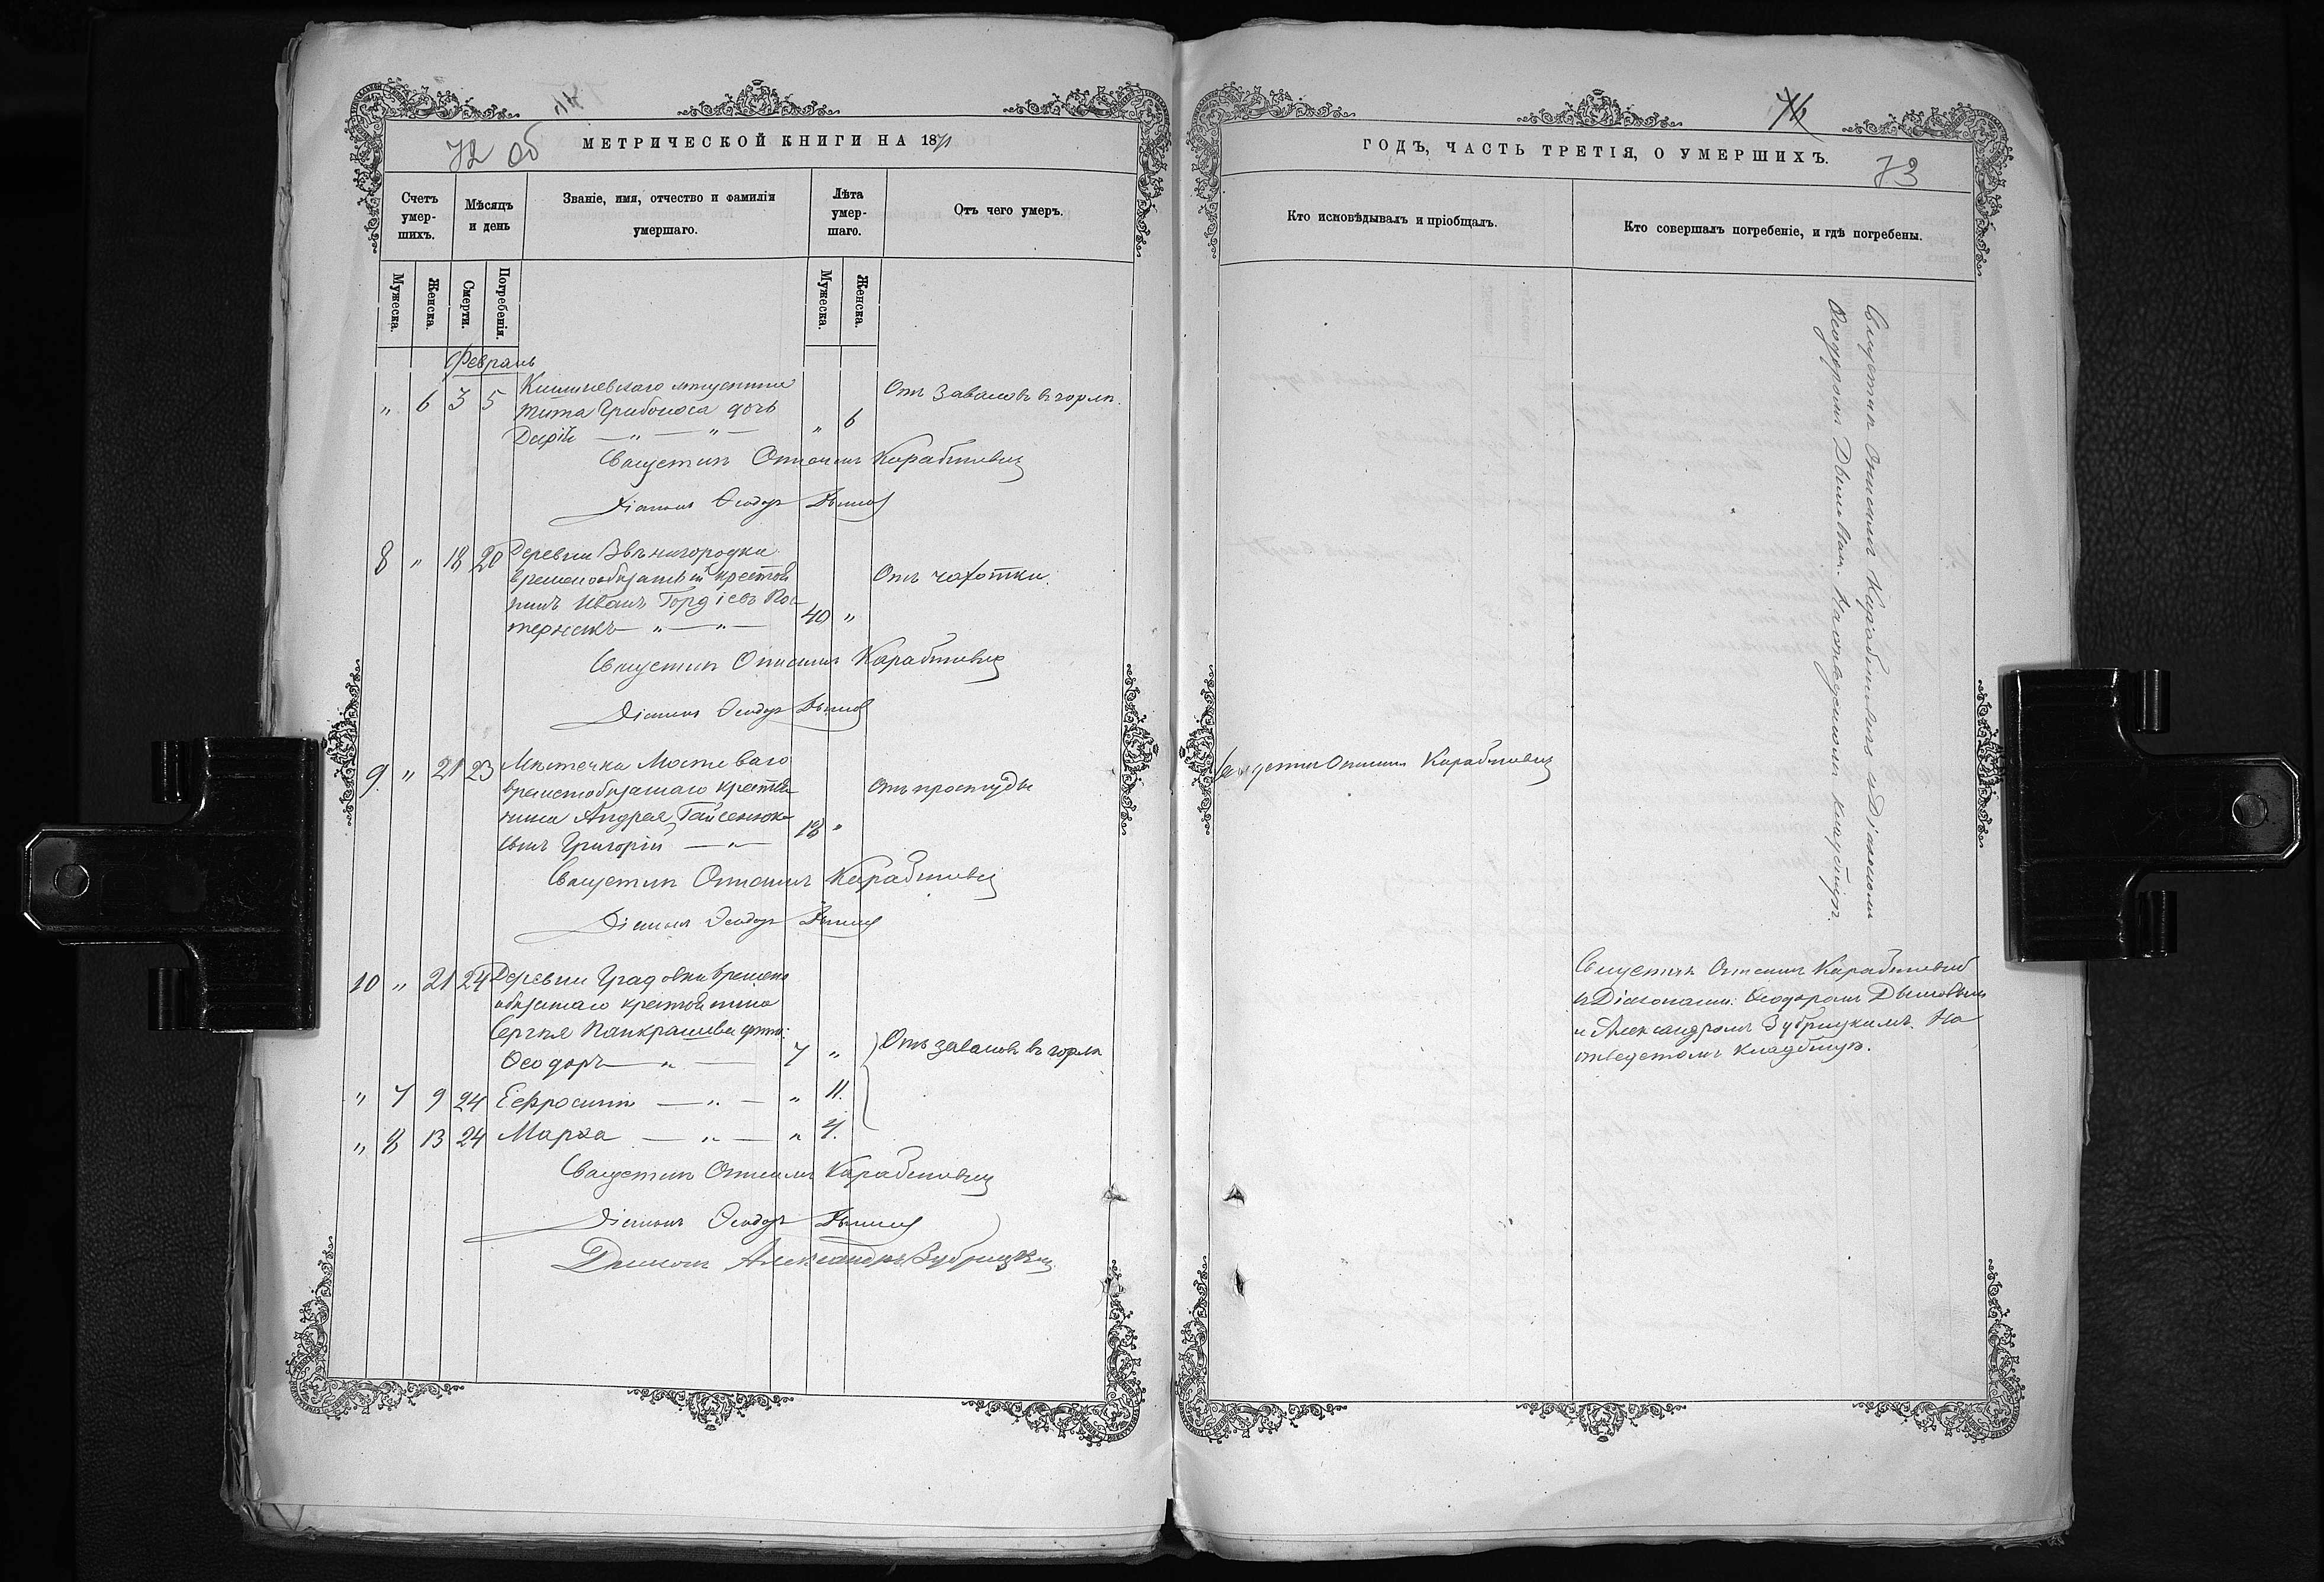 72 об
МЕТРИЧЕСКОЙ КНИГИ НА 1871
Счетъ умер-шихъ.
Мѣсяцъ и день
Званіе, имя, отчество и фамилія умершаго.
Лѣта умер-шаго.
Отъ чего умеръ.
Мужеска.
Женска.
Смерти.
Погребенія.
Мужеска.
Женска.
Февраль
" 6 3 5
Тита Грибоноса дочь
Дарія — " — " — " 6
Отъ заваловъ въ горлѣ.
Священникъ Карабиневич
Діаконъ Ѳеодоръ Дымов
8 " 18 20 Деревни Звѣнигородки
временнообязанный крестья
нинъ Иванъ Гордіевъ Кос
тернакъ — " — " — 40 "
Отъ чахотки.
Священникъ Карабиневич
Діаконъ Ѳеодоръ Дымов
9. " 21 23 Мѣстечка Мостоваго
временнобязанаго крестья
нина Андрея Гайсенюка
сынъ Григорій — " — 18 "
Отъ простуды
Священникъ Карабиневич
Діаконъ Ѳеодоръ Дымов
10 " 21 24 Деревни Градовки времено
обязанаго крестьянина
Сергѣя Панкрашева дѣти:
Ѳеодоръ — " — 7 "
Отъ заваловъ въ горлѣ
" 7 9 24 Ефросинія — " — " 11.
" 8 13 24 Марѳа — " — " 4.
Священникъ Карабиневич
Діаконъ Ѳеодоръ Дымов
Діаконъ Александръ Зубрицкій
ГОДЪ, ЧАСТЬ ТРЕТІЯ, О УМЕРШИХЪ.
73
Кто исповѣдывалъ и пріобщалъ.
Кто совершалъ погребеніе, и гдѣ погребены.
Священникъ Карабиневич съ Діакономъ
Ѳеодоромъ Дымовымъ. На отведенномъ кладбищѣ.
Священникъ Карабиневич
Священникъ Карабиневич
съ Діаконами: Ѳеодоромъ Дымовымъ
и Александромъ Зубрицкимъ. На
отведеномъ кладбищѣ.